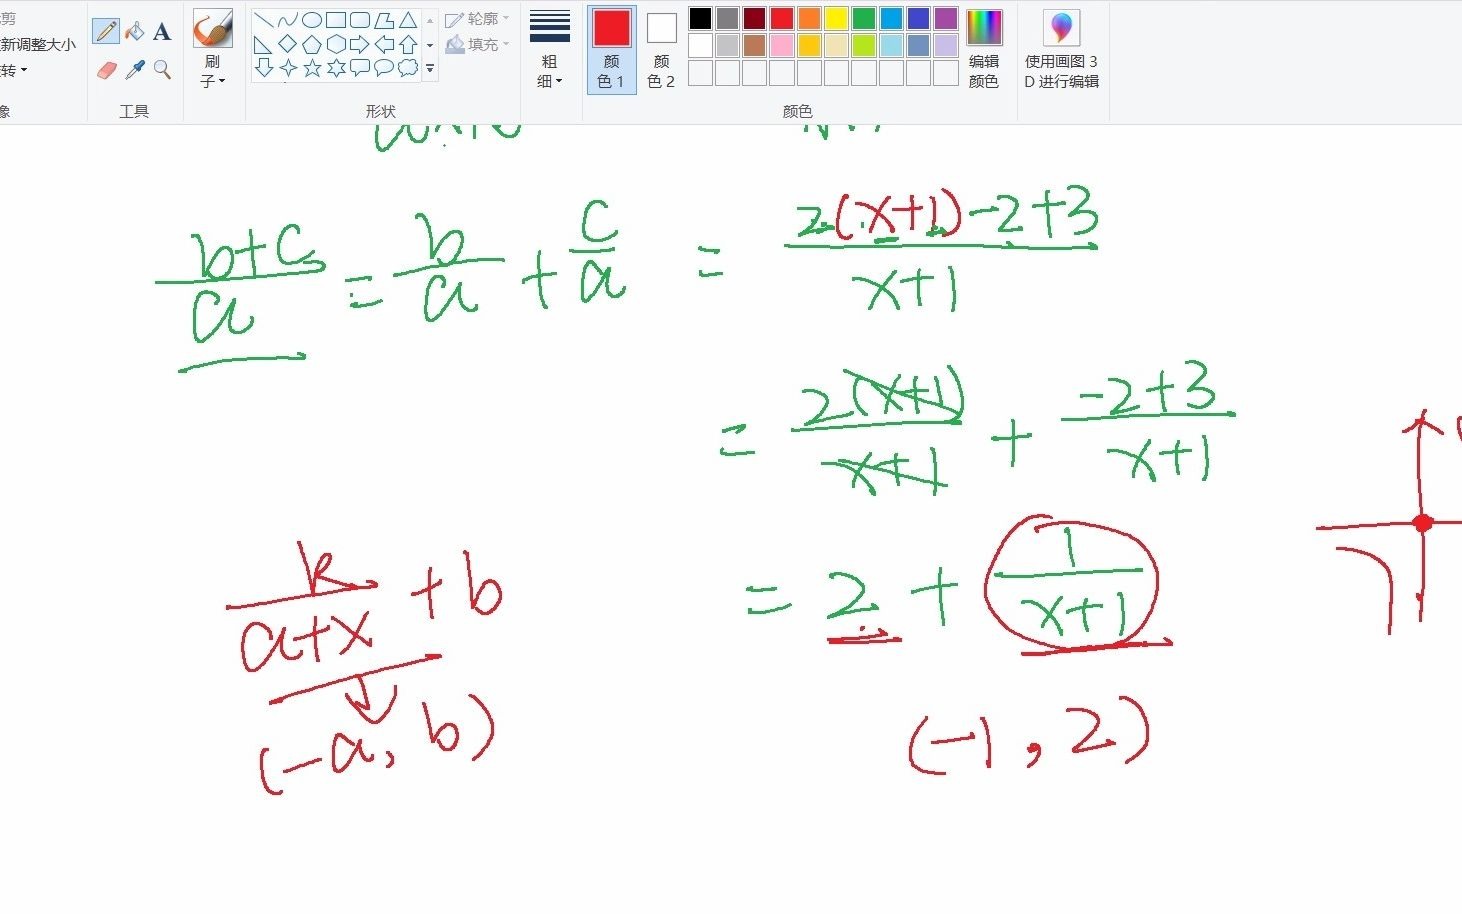 剪
新调整大小
转
象
A
工具
刷
子
轮廓
填充
形状
粗
细
颜
色 1
颜
色 2
颜色
编辑
颜色
使用画图 3
D 进行编辑
(b+c)/a = b/a + c/a
= (2(x+1)-2+3)/(x+1)
= 2(x+1)/(x+1) + (-2+3)/(x+1)
= 2 + 1/(x+1)
(-1, 2)
k/(a+x) + b
(-a, b)